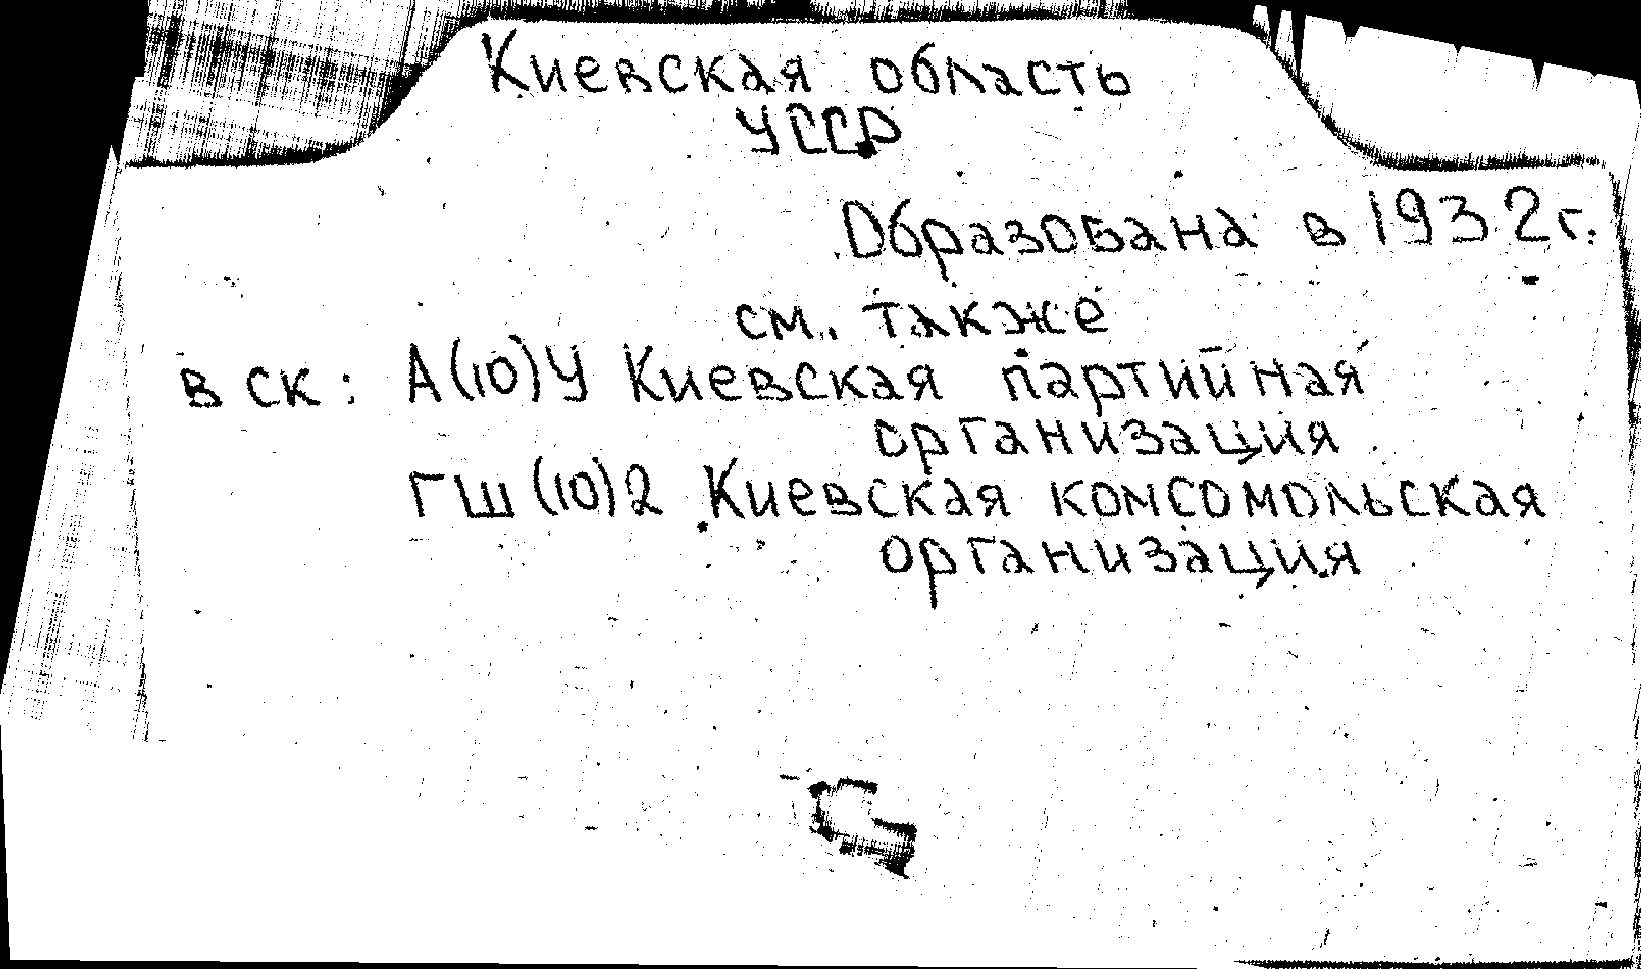 Киевская область
УССР
Образована в 1932г.
см. также
в ск: А(10)У Киевская партийная
организация
ГШ(10)2 Киевская комсомольская
организация